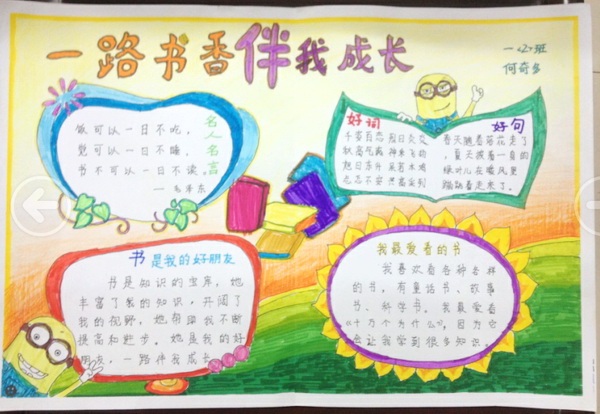 一路书香伴我成长
一〈2〉班
何奇多
名人名言
饭可以一日不吃，
觉可以一日不睡，
书不可以一日不读。
—毛泽东
好词
千姿百态 烈日炎炎
秋高气爽 神采飞韵
旭日东升 呆若木鸡
忐忑不安 兴高采烈
好句
春天随着落花走了
，夏天披着一身的
绿叶儿在暖风里
蹦跳着走来了。
书是我的好朋友
书是知识的宝库，她
丰富了我的知识，开阔了
我的视野，她帮助我不断
提高和进步。她是我的好
朋友，一路伴我成长。
我最爱看的书
我喜欢看各种各样
的书，有童话书、故事
书、科学书。我最爱看
《十万个为什么》，因为它
会让我学到很多知识。